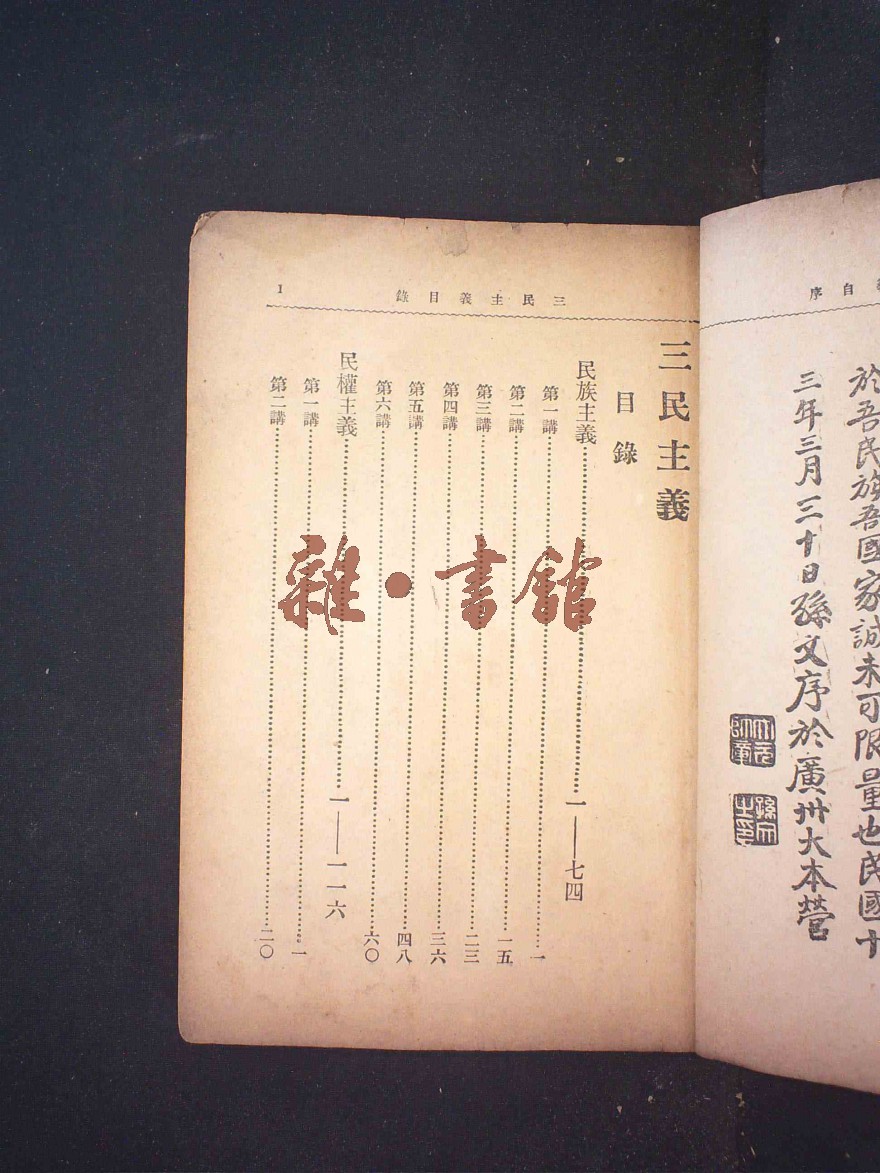 自序
於吾民族吾國家誠未可限量也民國十
三年三月三十日孫文序於廣州大本營
三民主義目錄
1
三民主義
目錄
民族主義 一——七四
第一講 一
第二講 一五
第三講 二三
第四講 三六
第五講 四八
第六講 六〇
民權主義 一——一一六
第一講 一
第二講 二〇
雜·書館